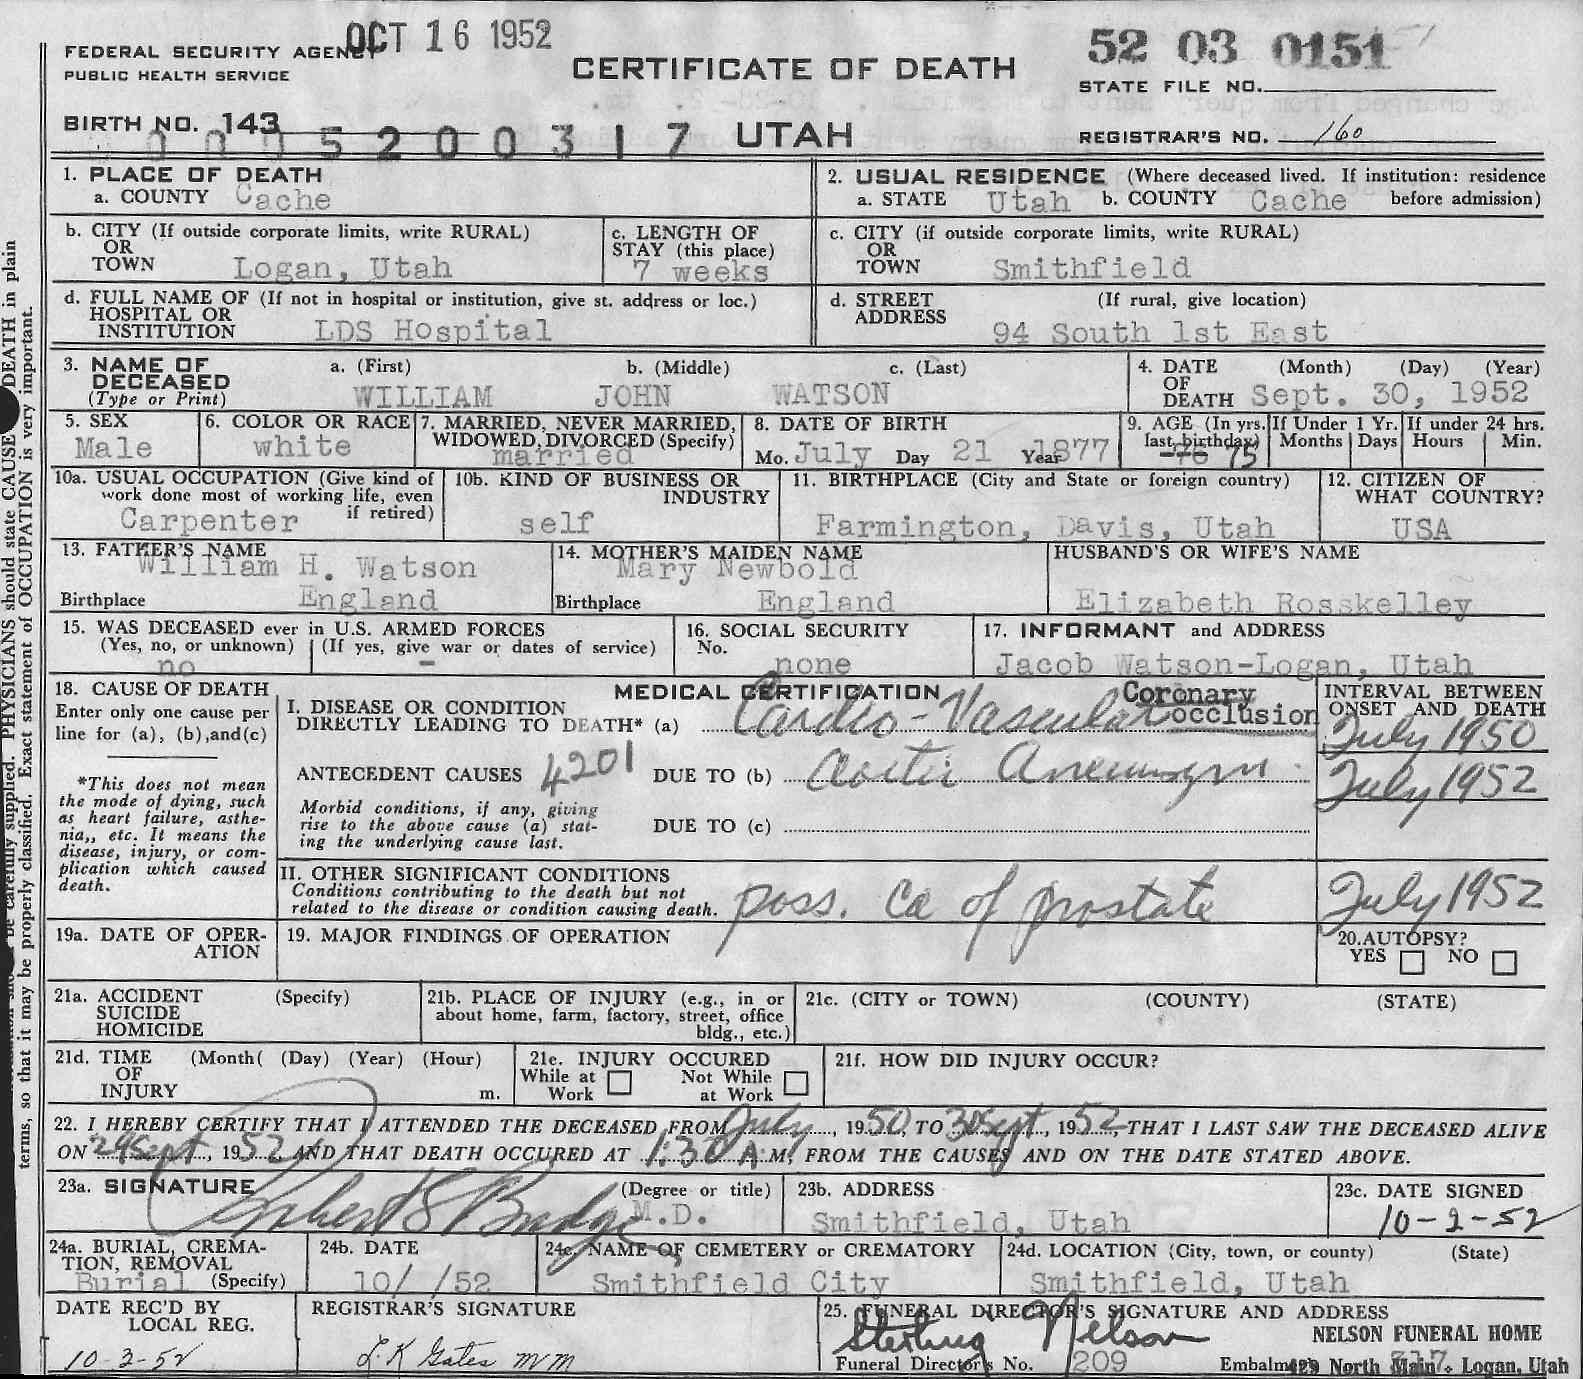 OCT 16 1952
FEDERAL SECURITY AGENCY
PUBLIC HEALTH SERVICE
CERTIFICATE OF DEATH
52 03 0151
STATE FILE NO.
BIRTH NO. 143
5200317
UTAH
REGISTRAR'S NO. 160
1. PLACE OF DEATH
a. COUNTY Cache
2. USUAL RESIDENCE (Where deceased lived. If institution: residence before admission)
a. STATE Utah b. COUNTY Cache
b. CITY (If outside corporate limits, write RURAL)
OR TOWN Logan, Utah
c. LENGTH OF STAY (this place)
7 weeks
c. CITY (if outside corporate limits, write RURAL)
OR TOWN Smithfield
d. FULL NAME OF (If not in hospital or institution, give st. address or loc.)
HOSPITAL OR INSTITUTION LDS Hospital
d. STREET ADDRESS (If rural, give location)
94 South 1st East
3. NAME OF DECEASED (Type or Print)
a. (First) b. (Middle) c. (Last)
WILLIAM JOHN WATSON
4. DATE OF DEATH (Month) (Day) (Year)
Sept. 30, 1952
5. SEX
Male
6. COLOR OR RACE
white
7. MARRIED, NEVER MARRIED, WIDOWED, DIVORCED (Specify)
married
8. DATE OF BIRTH
Mo. July Day 21 Year 1877
9. AGE (In yrs. last birthday)
76 75
If Under 1 Yr. Months Days
If under 24 hrs. Hours Min.
10a. USUAL OCCUPATION (Give kind of work done most of working life, even if retired)
Carpenter
10b. KIND OF BUSINESS OR INDUSTRY
self
11. BIRTHPLACE (City and State or foreign country)
Farmington, Davis, Utah
12. CITIZEN OF WHAT COUNTRY?
USA
13. FATHER'S NAME
William H. Watson
Birthplace England
14. MOTHER'S MAIDEN NAME
Mary Newbold
Birthplace England
HUSBAND'S OR WIFE'S NAME
Elizabeth Rosskelley
15. WAS DECEASED ever in U.S. ARMED FORCES
(Yes, no, or unknown) (If yes, give war or dates of service)
no -
16. SOCIAL SECURITY No.
none
17. INFORMANT and ADDRESS
Jacob Watson-Logan, Utah
18. CAUSE OF DEATH
Enter only one cause per line for (a), (b), and (c)
*This does not mean the mode of dying, such as heart failure, asthenia,, etc. It means the disease, injury, or complication which caused death.
MEDICAL CERTIFICATION
I. DISEASE OR CONDITION DIRECTLY LEADING TO DEATH* (a) Cardio-Vascular Coronary occlusion
INTERVAL BETWEEN ONSET AND DEATH
July 1950
ANTECEDENT CAUSES 4201 DUE TO (b) Aortic Aneurysm
July 1952
Morbid conditions, if any, giving rise to the above cause (a) stating the underlying cause last.
DUE TO (c)
II. OTHER SIGNIFICANT CONDITIONS
Conditions contributing to the death but not related to the disease or condition causing death.
poss. Ca of prostate
July 1952
19a. DATE OF OPERATION
19. MAJOR FINDINGS OF OPERATION
20. AUTOPSY?
YES NO
21a. ACCIDENT SUICIDE HOMICIDE (Specify)
21b. PLACE OF INJURY (e.g., in or about home, farm, factory, street, office bldg., etc.)
21c. (CITY or TOWN) (COUNTY) (STATE)
21d. TIME OF INJURY (Month( (Day) (Year) (Hour) m.
21e. INJURY OCCURED
While at Work Not While at Work
21f. HOW DID INJURY OCCUR?
22. I HEREBY CERTIFY THAT I ATTENDED THE DECEASED FROM July, 1950, TO 30 Sept, 1952, THAT I LAST SAW THE DECEASED ALIVE
ON 29 Sept, 1952 AND THAT DEATH OCCURED AT 1:30 A M, FROM THE CAUSES AND ON THE DATE STATED ABOVE.
23a. SIGNATURE (Degree or title)
Robert S Budge M.D.
23b. ADDRESS
Smithfield, Utah
23c. DATE SIGNED
10-2-52
24a. BURIAL, CREMATION, REMOVAL (Specify)
Burial
24b. DATE
10/ /52
24c. NAME OF CEMETERY or CREMATORY
Smithfield City
24d. LOCATION (City, town, or county) (State)
Smithfield, Utah
DATE REC'D BY LOCAL REG.
10-3-52
REGISTRAR'S SIGNATURE
25. FUNERAL DIRECTOR'S SIGNATURE AND ADDRESS
Sterling Nelson
NELSON FUNERAL HOME
Funeral Director's No. 209
429 North Main - Logan, Utah
317
DEATH in plain
PHYSICIANS should state CAUSE
be carefully supplied.
terms, so that it may be properly classified. Exact statement of OCCUPATION is very important.